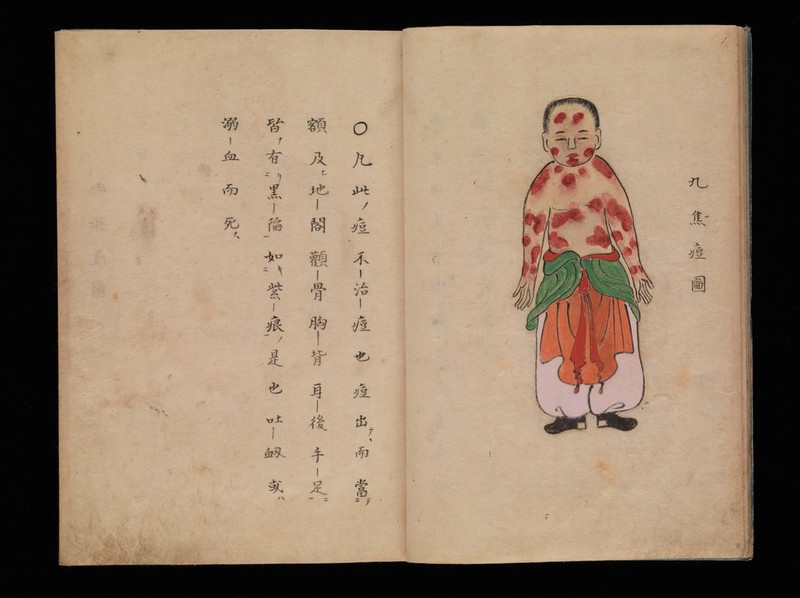 九焦痘圖
〇凡此痘不治痘也痘出而當
額及地閣顴骨胸背耳後手足
皆有黒陥如紫痕是也吐衂或
溺血而死